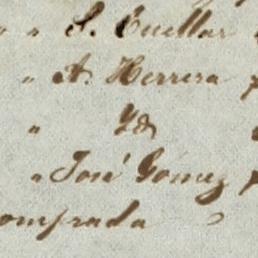 " " S. Cuellar
" A. Herrera
" Yd
" José Gomez
omprada